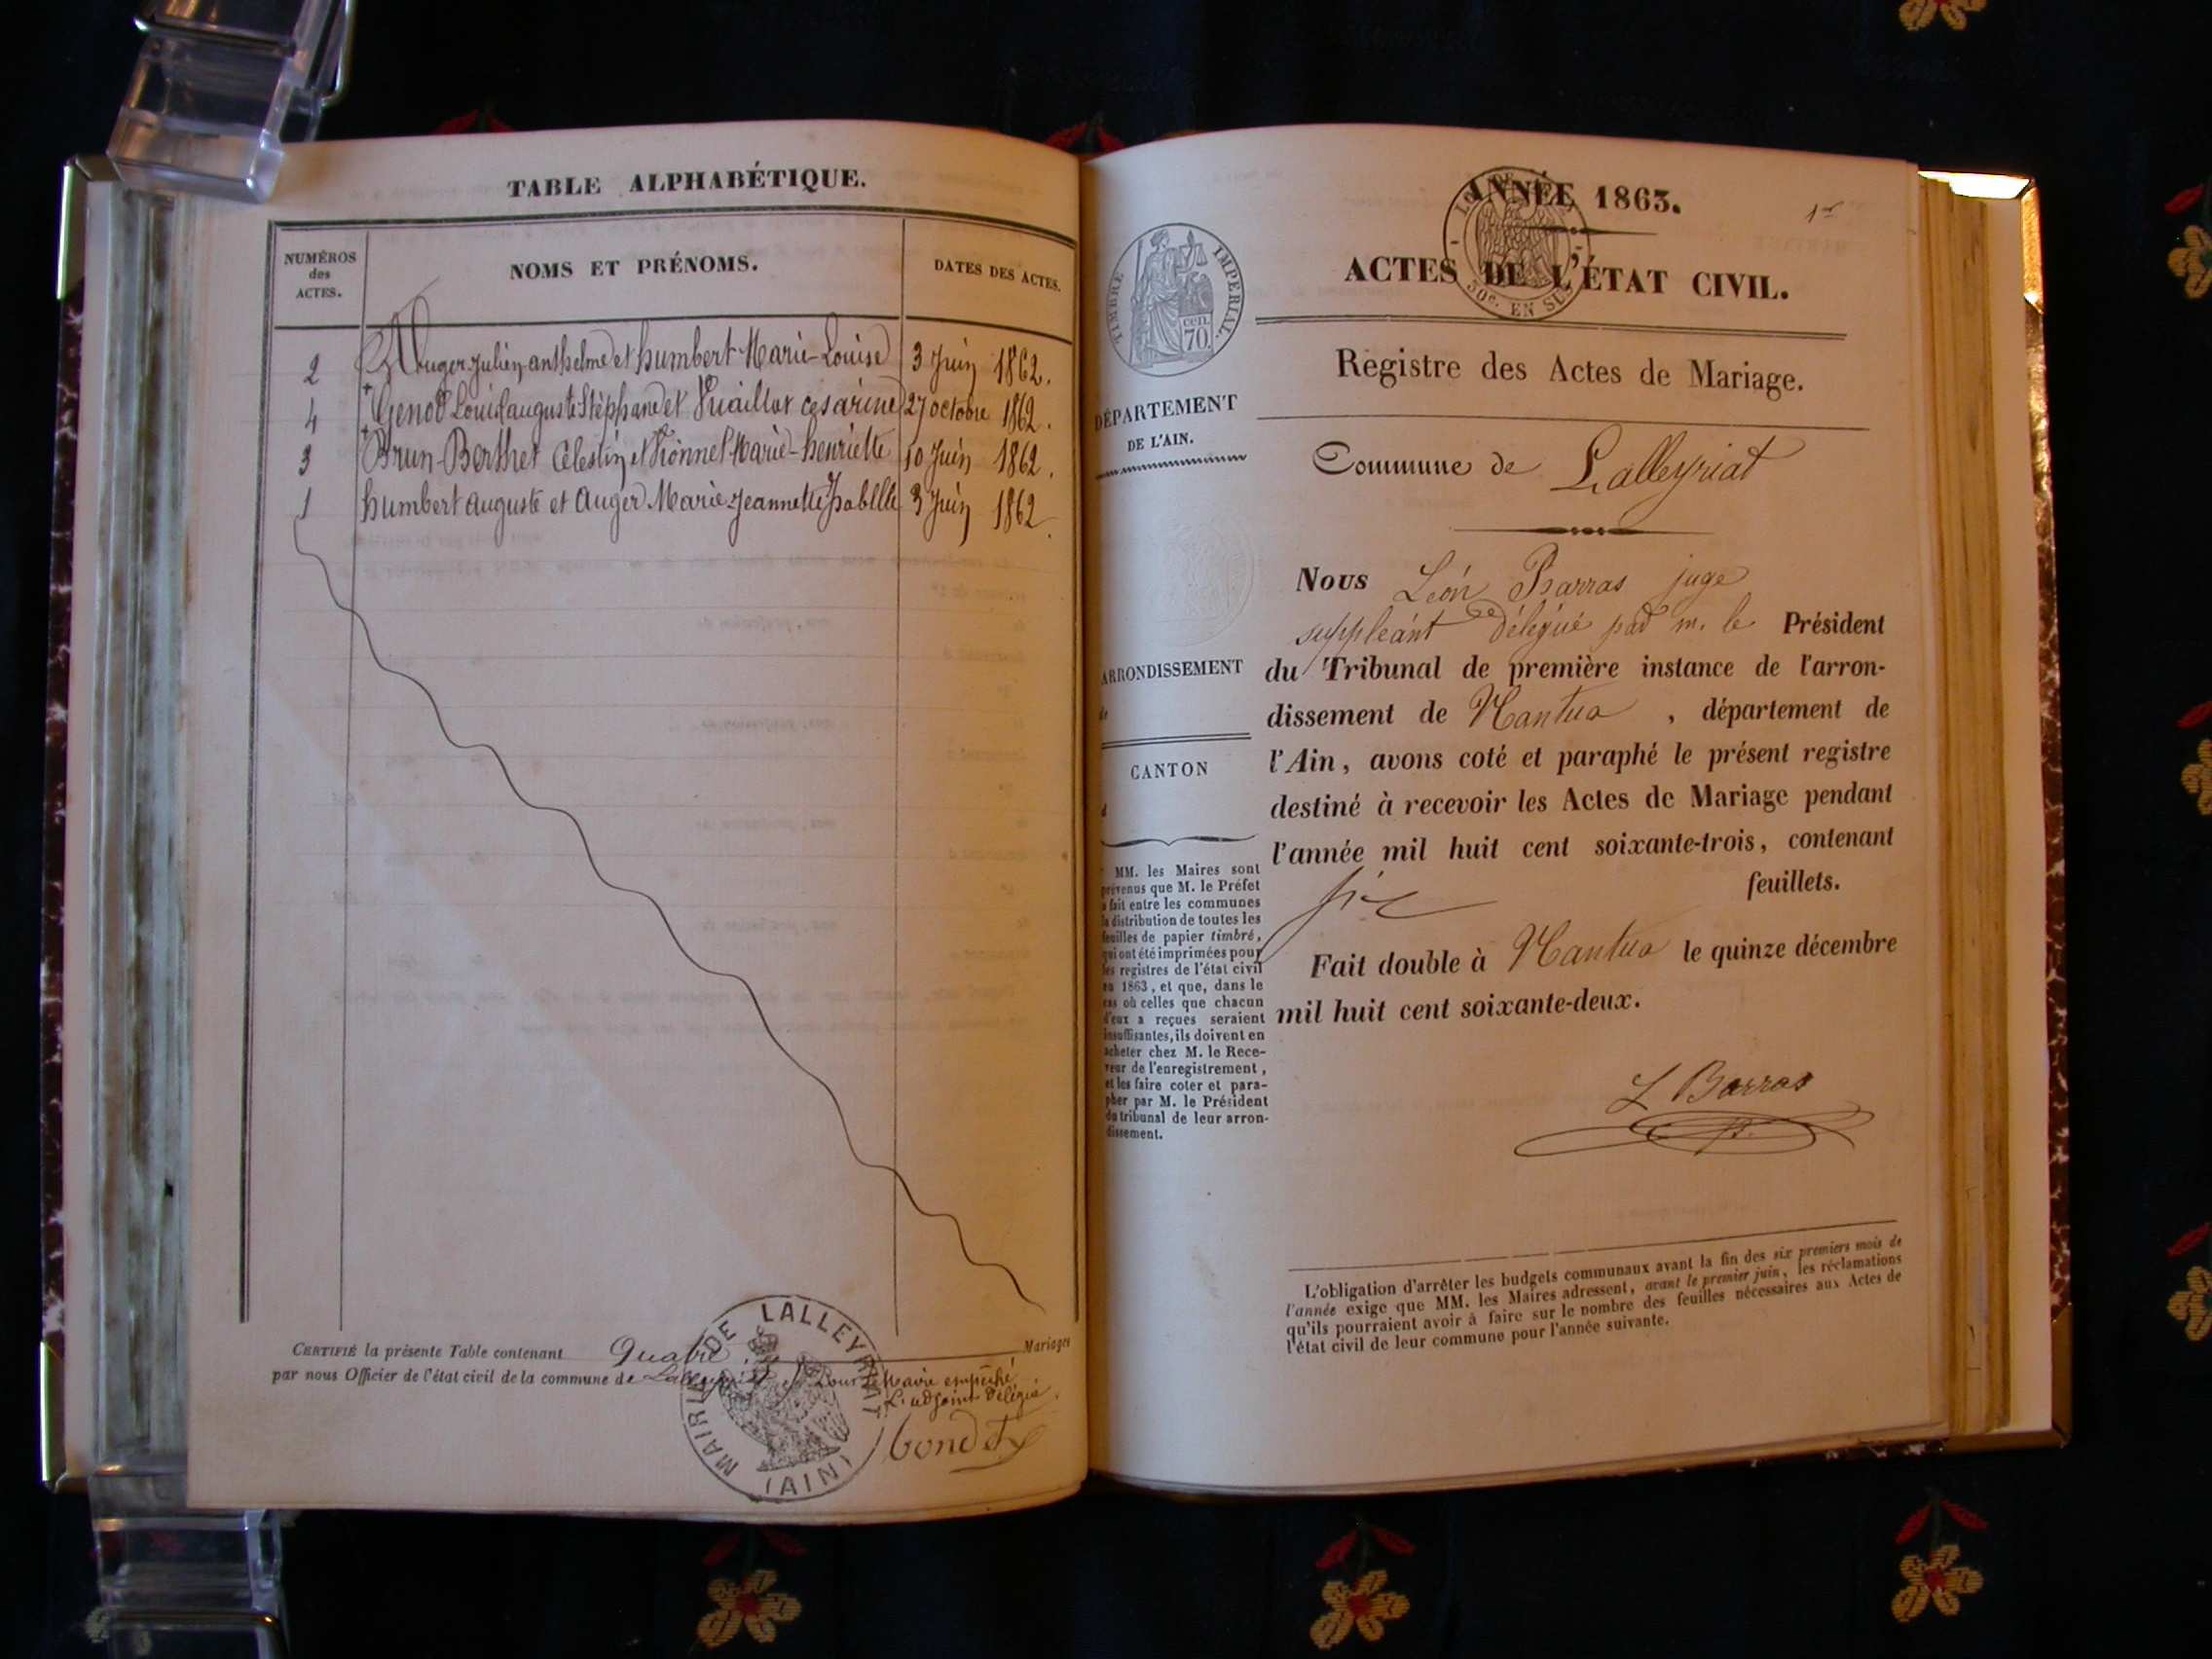 TABLE ALPHABÉTIQUE.
NUMÉROS
des
ACTES.
NOMS ET PRÉNOMS.
DATES DES ACTES.
2 Auger Julien anthelme et humbert Marie-Louise 3 Juin 1862.
4 Genod Louis auguste Stéphane et Vuaillat cesarine 27 octobre 1862.
3 Brun-Berthet Célestin et Vionnet Marie-henriette 10 Juin 1862.
1 humbert auguste et auger Marie-Jeannette Isabelle 3 Juin 1862.
CERTIFIÉ la présente Table contenant Quatre Mariages
par nous Officier de l'état civil de la commune de Lalleyriat Pour le Maire empêché
L'adjoint Délégué.
MAIRIE DE LALLEYRIAT
(AIN)
ANNÉE 1863.
1er
EN SUS
TIMBRE IMPÉRIAL.
cen.
70.
ACTES DE L'ÉTAT CIVIL.
Registre des Actes de Mariage.
DÉPARTEMENT
DE L'AIN.
Commune de Lalleyriat
ARRONDISSEMENT
de
CANTON
d
MM. les Maires sont
prévenus que M. le Préfet
a fait entre les communes
la distribution de toutes les
feuilles de papier timbré,
qui ont été imprimées pour
les registres de l'état civil
en 1863, et que, dans le
cas où celles que chacun
d'eux a reçues seraient
insuffisantes, ils doivent en
acheter chez M. le Rece-
veur de l'enregistrement,
et les faire coter et para-
pher par M. le Président
du tribunal de leur arron-
dissement.
Nous Léon Barras juge
suppléant délégué par m. le Président
du Tribunal de première instance de l'arron-
dissement de Nantua, département de
l'Ain, avons coté et paraphé le présent registre
destiné à recevoir les Actes de Mariage pendant
l'année mil huit cent soixante-trois, contenant
six feuillets.
Fait double à Nantua le quinze décembre
mil huit cent soixante-deux.
L Barras
L'obligation d'arrêter les budgets communaux avant la fin des six premiers mois de
l'année exige que MM. les Maires adressent, avant le premier juin, les réclamations
qu'ils pourraient avoir à faire sur le nombre des feuilles nécessaires aux Actes de
l'état civil de leur commune pour l'année suivante.